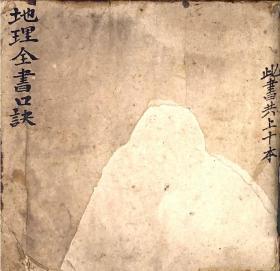 地理全書口訣
此書共上十本